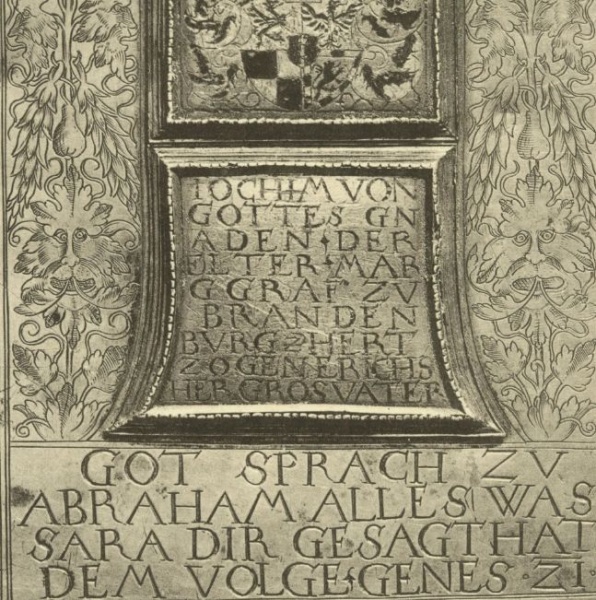 IOCHIM VON
GOTTES GN
ADEN DER
ELTER MAR
GGRAF ZU
BRANDEN
BURG 2 HERT
ZOGEN ERICHS
HER GROSVATER
GOT SPRACH ZV
ABRAHAM ALLES WAS
SARA DIR GESAGT HAT
DEM VOLGE GENES · ZI ·